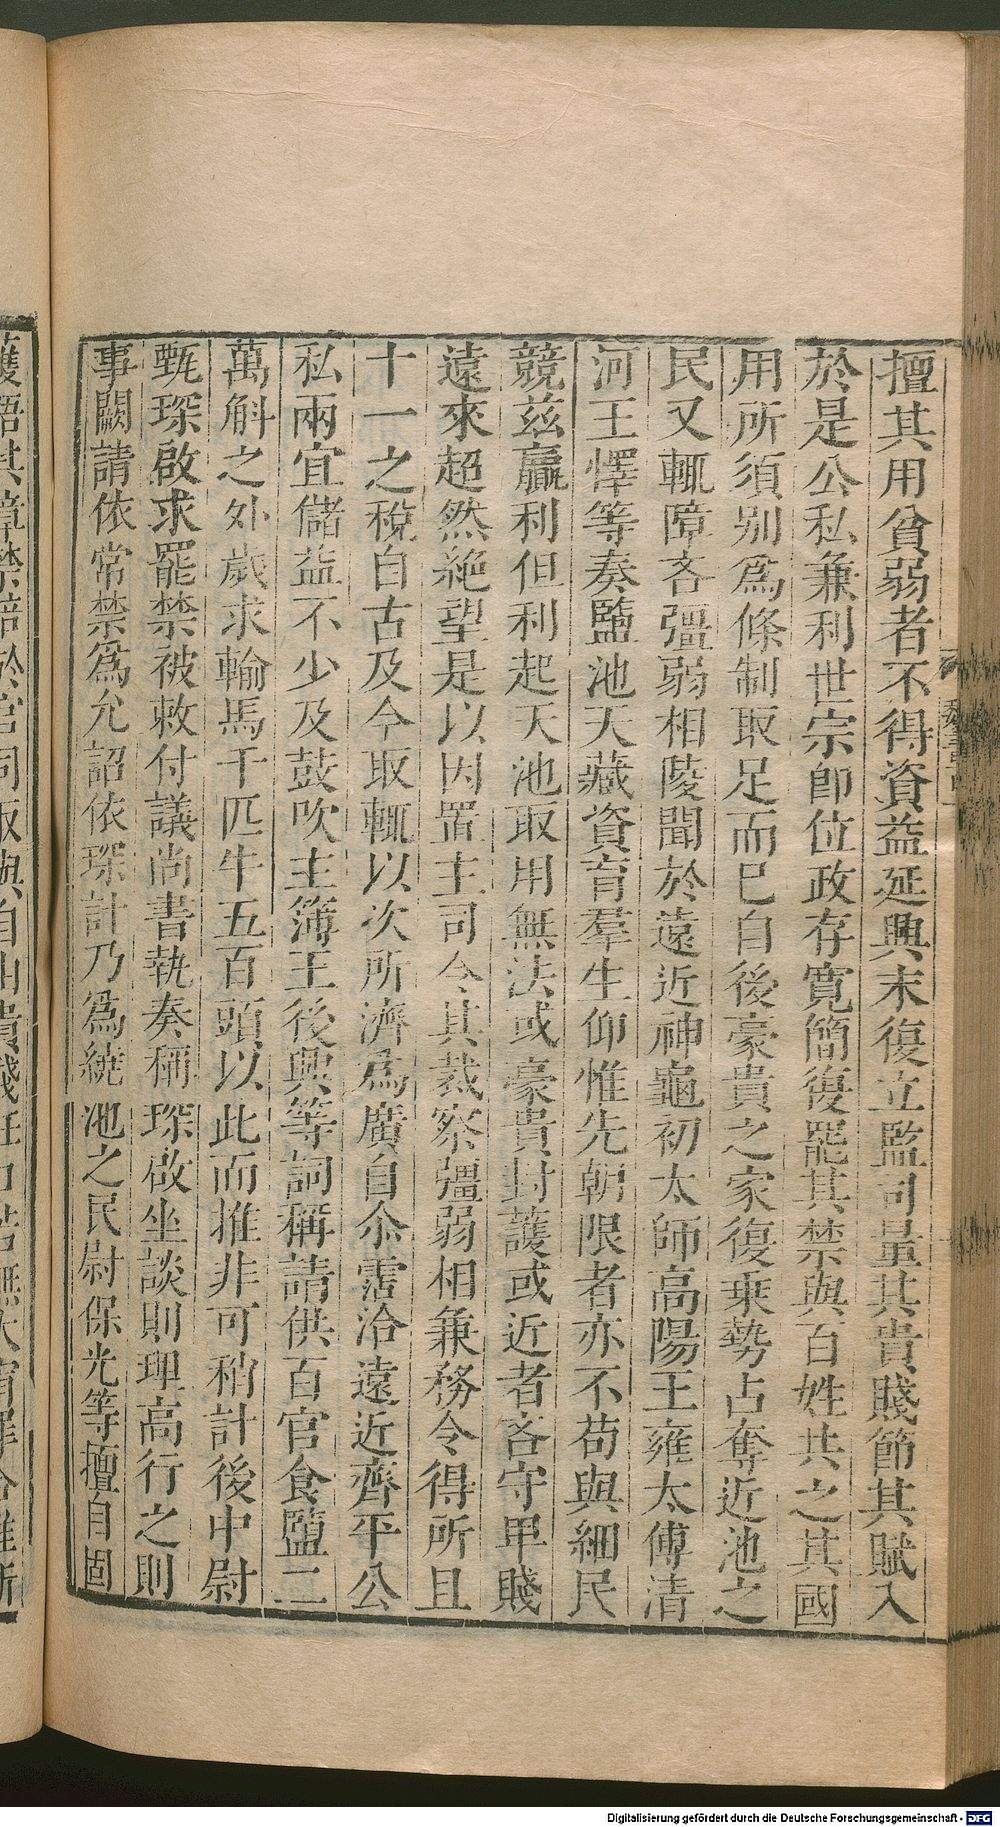 擅其用貧弱者不得資益延興末復立監司量其貴賤節其賦入
於是公私兼利世宗卽位政存寬簡復罷其禁與百姓共之其國
用所須别爲條制取足而已自後豪貴之家復乗勢占奪近池之
民又輒障吝彊弱相陵聞於遠近神龜初太師高陽王雍太傅清
河王懌等奏鹽池天藏資育羣生仰惟先朝限者亦不苟與細民
競兹贏利但利起天池取用無法或豪貴封護或近者吝守卑賤
遠來超然絶望是以因置主司令其裁察彊弱相兼務令得所且
十一之稅自古及今取輒以次所濟爲廣自尒霑洽遠近齊平公
私兩宜儲益不少及鼓吹主簿王後興等詞稱請供百官食鹽二
萬斛之外歲求輸馬千匹牛五百頭以此而推非可稍計後中尉
甄琛啟求罷禁被敕付議尚書執奏稱琛啟坐談則理高行之則
事闕請依常禁爲允詔依琛計乃爲繞池之民尉保光等擅自固
Digitalisierung gefördert durch die Deutsche Forschungsgemeinschaft - DFG